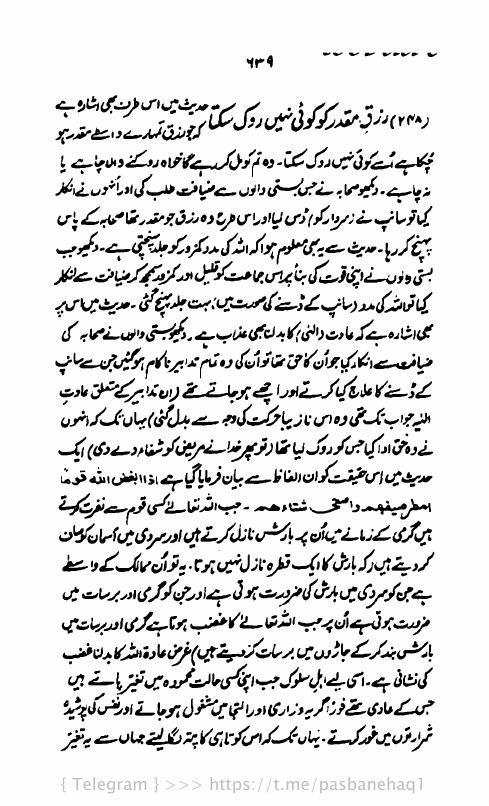 ۶۳۹
(۲۴۸) رزقِ مقدر کو کوئی نہیں روک سکتا حدیث میں اس طرف بھی اشارہ ہے
کہ جو رزق تمہارے واسطے مقدر ہو
چکا ہے اُسے کوئی نہیں روک سکتا۔ وہ تم کو مل کر رہے گا خواہ روکنے والا چاہے یا
نہ چاہے۔ دیکھو صحابہ نے جس بستی والوں سے ضیافت طلب کی اور اُنھوں نے انکار
کیا تو سانپ نے سردار کو ڈس لیا اور اس طرح وہ رزق جو مقدر تھا صحابہ کے پاس
پہنچ کر رہا۔ حدیث سے یہ بھی معلوم ہوا کہ اللہ کی مدد کمزور کو جلد پہنچتی ہے۔ دیکھو جب
بستی والوں نے اپنی قوت کی بنا پر اس جماعت کو قلیل اور کمزور سمجھ کر ضیافت سے انکار
کیا تو اللہ کی مدد (سانپ کے ڈسنے کی صورت میں) بہت جلد پہنچ گئی۔ حدیث میں اس پر
بھی اشارہ ہے کہ عادت (الٰہی) کا بدلنا بھی عذاب ہے۔ دیکھو بستی والوں نے صحابہ کی
ضیافت سے انکار کیا جو اُن کا حق تھا تو اُن کی وہ تمام تدابیر ناکام ہوگئیں جن سے سانپ
کے ڈسنے کا علاج کیا کرتے اور اچھے ہو جاتے تھے (ان تدابیر کے متعلق عادتِ
الٰہیہ جو اب تک تھی وہ اس نازیبا حرکت کی وجہ سے بدل گئی) یہاں تک کہ انہوں
نے وہ حق ادا کیا جس کو روک لیا تھا (تو پھر خدا نے مریض کو شفاء دے دی) ایک
حدیث میں اس حقیقت کو ان الفاظ سے بیان فرمایا گیا ہے اذا ابغض اللہ قوما
امطر صیفہم واصحی شتاءھم۔ جب اللہ تعالےٰ کسی قوم سے نفرت کرتے
ہیں گرمی کے زمانے میں اُن پر بارش نازل کرتے ہیں اور سردی میں آسمان کو صاف
کر دیتے ہیں (کہ بارش کا ایک قطرہ نازل نہیں ہوتا۔ یہ تو اُن ممالک کے واسطے
ہے جن کو سردی میں بارش کی ضرورت ہوتی ہے اور جن کو گرمی اور برسات میں
ضرورت ہوتی ہے اُن پر جب اللہ تعالےٰ کا غضب ہوتا ہے گرمی اور برسات میں
بارش بند کر کے جاڑوں میں برسات کر دیتے ہیں) غرض عادۃ اللہ کا بدلنا غضب
کی نشانی ہے۔ اسی لیے اہلِ سلوک جب اپنی کسی حالتِ محمودہ میں تغیر پاتے ہیں
جس کے عادی تھے فوراً گریہ وزاری اور التجا میں مشغول ہو جاتے اور نفس کی پوشیدہ
شرارتوں میں غور کرتے۔ یہاں تک کہ اس کوتاہی کا پتہ لگا لیتے جہاں سے یہ تغیر
{ Telegram } >>> https://t.me/pasbanehaq1